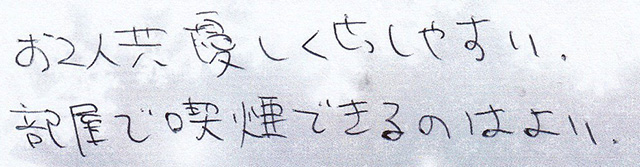 お2人共優しくせっしやすい.
部屋で喫煙できるのはよい.